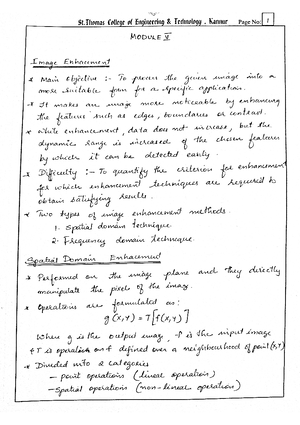 St.Thomas College of Engineering & Technology, Kannur Page No: 1
MODULE V
Image Enhancement
* Main Objective :- To process the given image into a
more suitable form for a specific application.
* It makes an image more noticeable by enhancing
the features such as edges, boundaries or contrast.
* While enhancement, data does not increase, but the
dynamic range is increased of the chosen features
by which it can be detected easily.
* Difficulty :- To quantify the criterion for enhancement
for which enhancement techniques are required to
obtain satisfying results.
* Two types of image enhancement methods.
1. Spatial domain technique
2. Frequency domain technique
Spatial Domain Enhancement
* Performed on the image plane and they directly
manipulate the pixel of the image.
* Operations are formulated as:
g(x,y) = T[f(x,y)]
Where g is the output image, f is the input image
& T is operation on f defined over a neighbourhood of point (x,y)
* Divided into 2 categories
- point operations (linear operation)
- Spatial operations (non-linear operation)